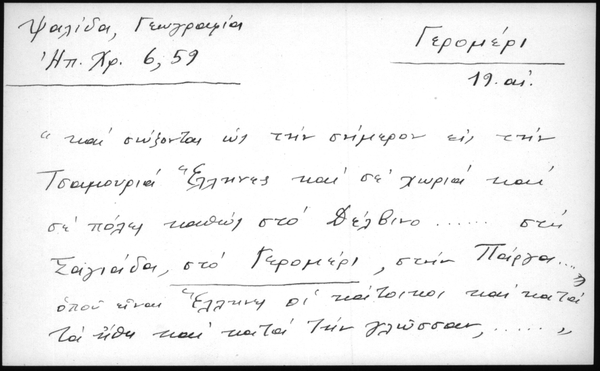 Ψαλίδα, Γεωγραφία
Ἠπ. Χρ. 6, 59
Γερομέρι
19. αἰ.
“ καί σώζονται ὡς τήν σήμερον εἰς τήν
Τσαμουριά Ἕλληνες καί σέ χωριά καί
σέ πόλες καθώς στό Δέλβινο ...... στή
Σαγιάδα, στό Γερομέρι, στήν Πάργα ...,
ὁπού εἶναι Ἕλληνες οἱ κάτοικοι καί κατά
τά ἤθη καί κατά τήν γλῶσσαν, ...... „